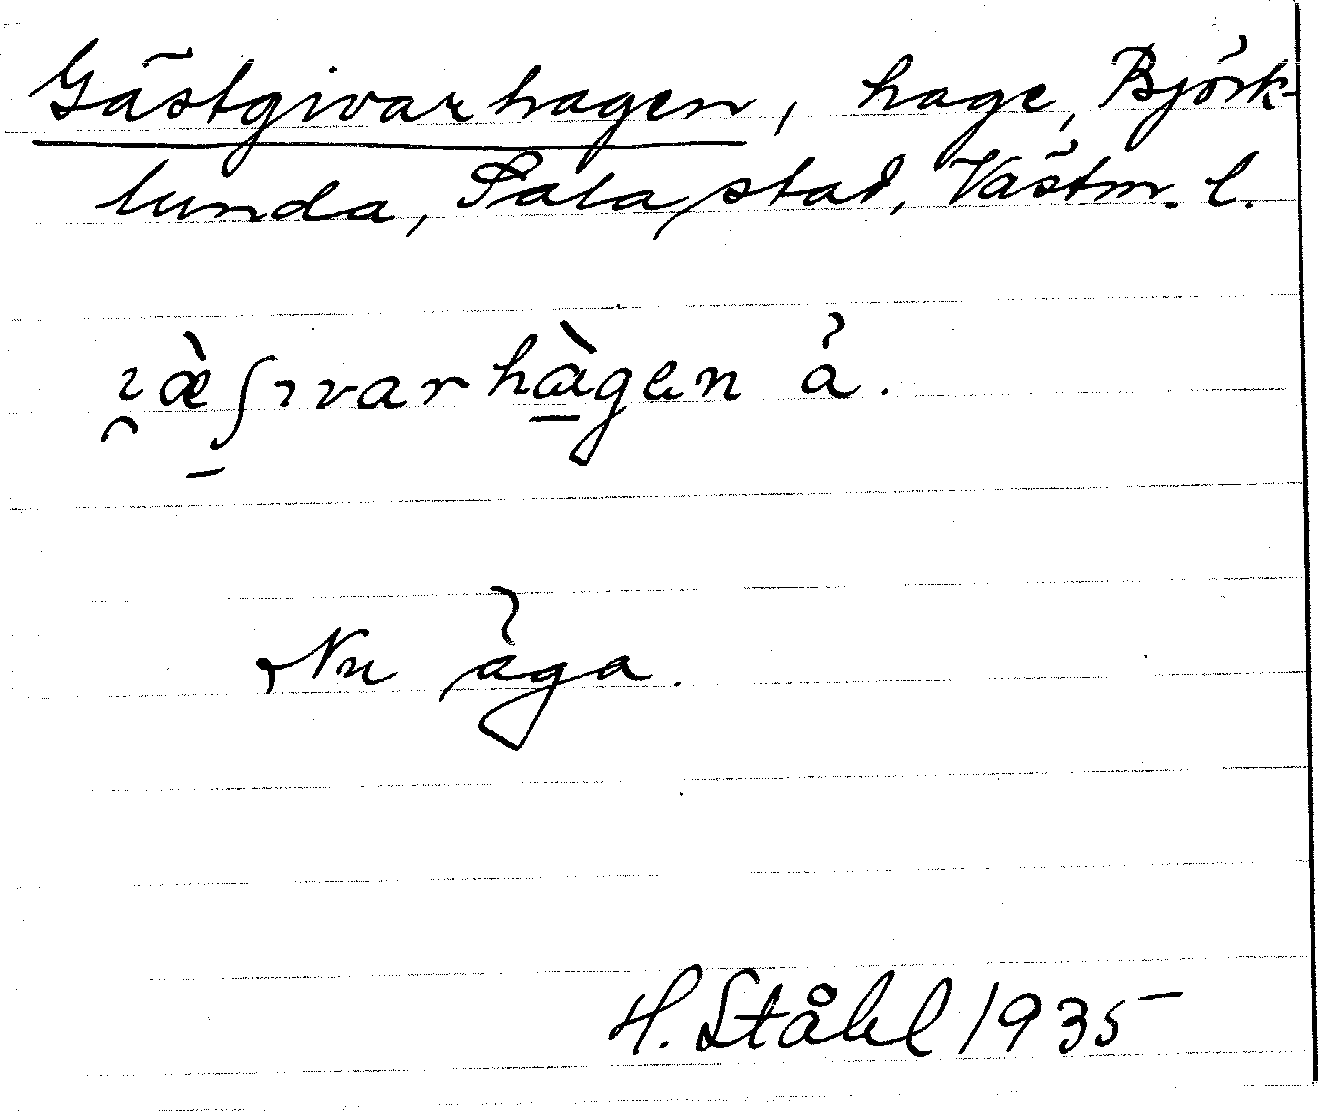 Gästgivarhagen, hage, Björk-
lunda, Sala stad, Västm. l.
i̯æ̀ʃıvarhàgen å̀.
Nu åga.
H. Ståhl 1935